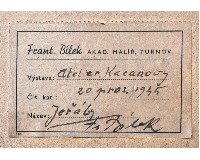 Frant. Bílek AKAD. MALÍŘ, TURNOV
Výstava: Atelier Kacanowy
Čís. kat.: 20 pros. 1945
Název: Jeřáby
Fr. Bílek